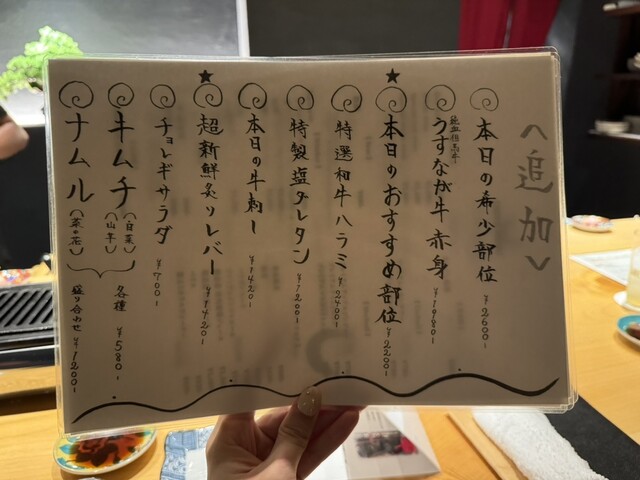 〈追加〉
本日の希少部位 ¥2600-
うすなが牛 赤身 ¥1980-
★本日のおすすめ部位 ¥2200-
特選和牛ハラミ ¥2400-
特製塩ダレタン ¥1200-
本日の牛刺し ¥1420-
★超新鮮炙りレバー ¥1420-
チョレギサラダ ¥700-
キムチ(白菜)(山芋) 各種 ¥580-
ナムル(菜の花) 盛り合わせ ¥1200-